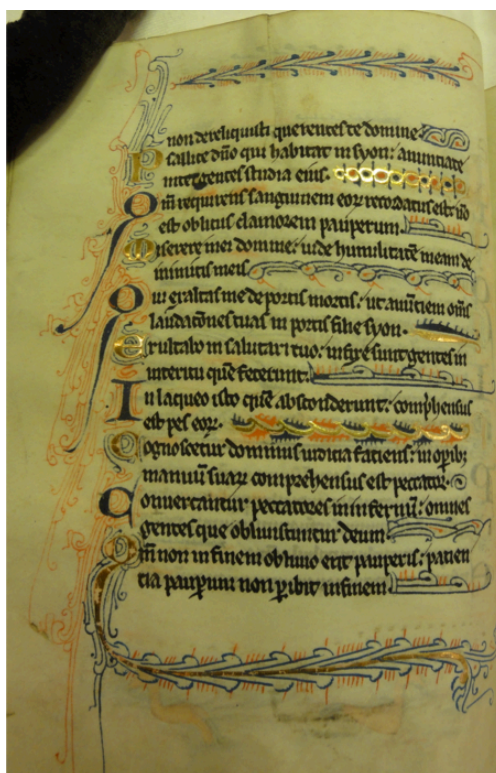 non dereliquisti querentes te domine
Psallite dño qui habitat in syon: anuntiate
inter gentes studia eius.
Qm̃ requirens sanguinem eoꝝ recordatus est: nõ
est oblitus clamorem pauperum.
Miserere mei domine: uide humilitatẽ meam de
inimicis meis.
Qui exaltas me de portis mortis: ut anũtiem om̃s
laudatões tuas in portis filie syon.
Exultabo in salutari tuo: infixe sunt gentes in
interitu quẽ fecerunt.
In laqueo isto quẽ absconderunt: comp̃hensus
est pes eoꝝ.
Cognoscetur dominus iuditia faciens: in opibꝫ
manuũ suaꝝ comprehensus est peccator.
Conuertantur peccatores in infernũ: omnes
gentes que obliuiscuntur deum.
Qm̃ non in finem obliuio erit pauperis: patien
tia paupum non pibit in finem.